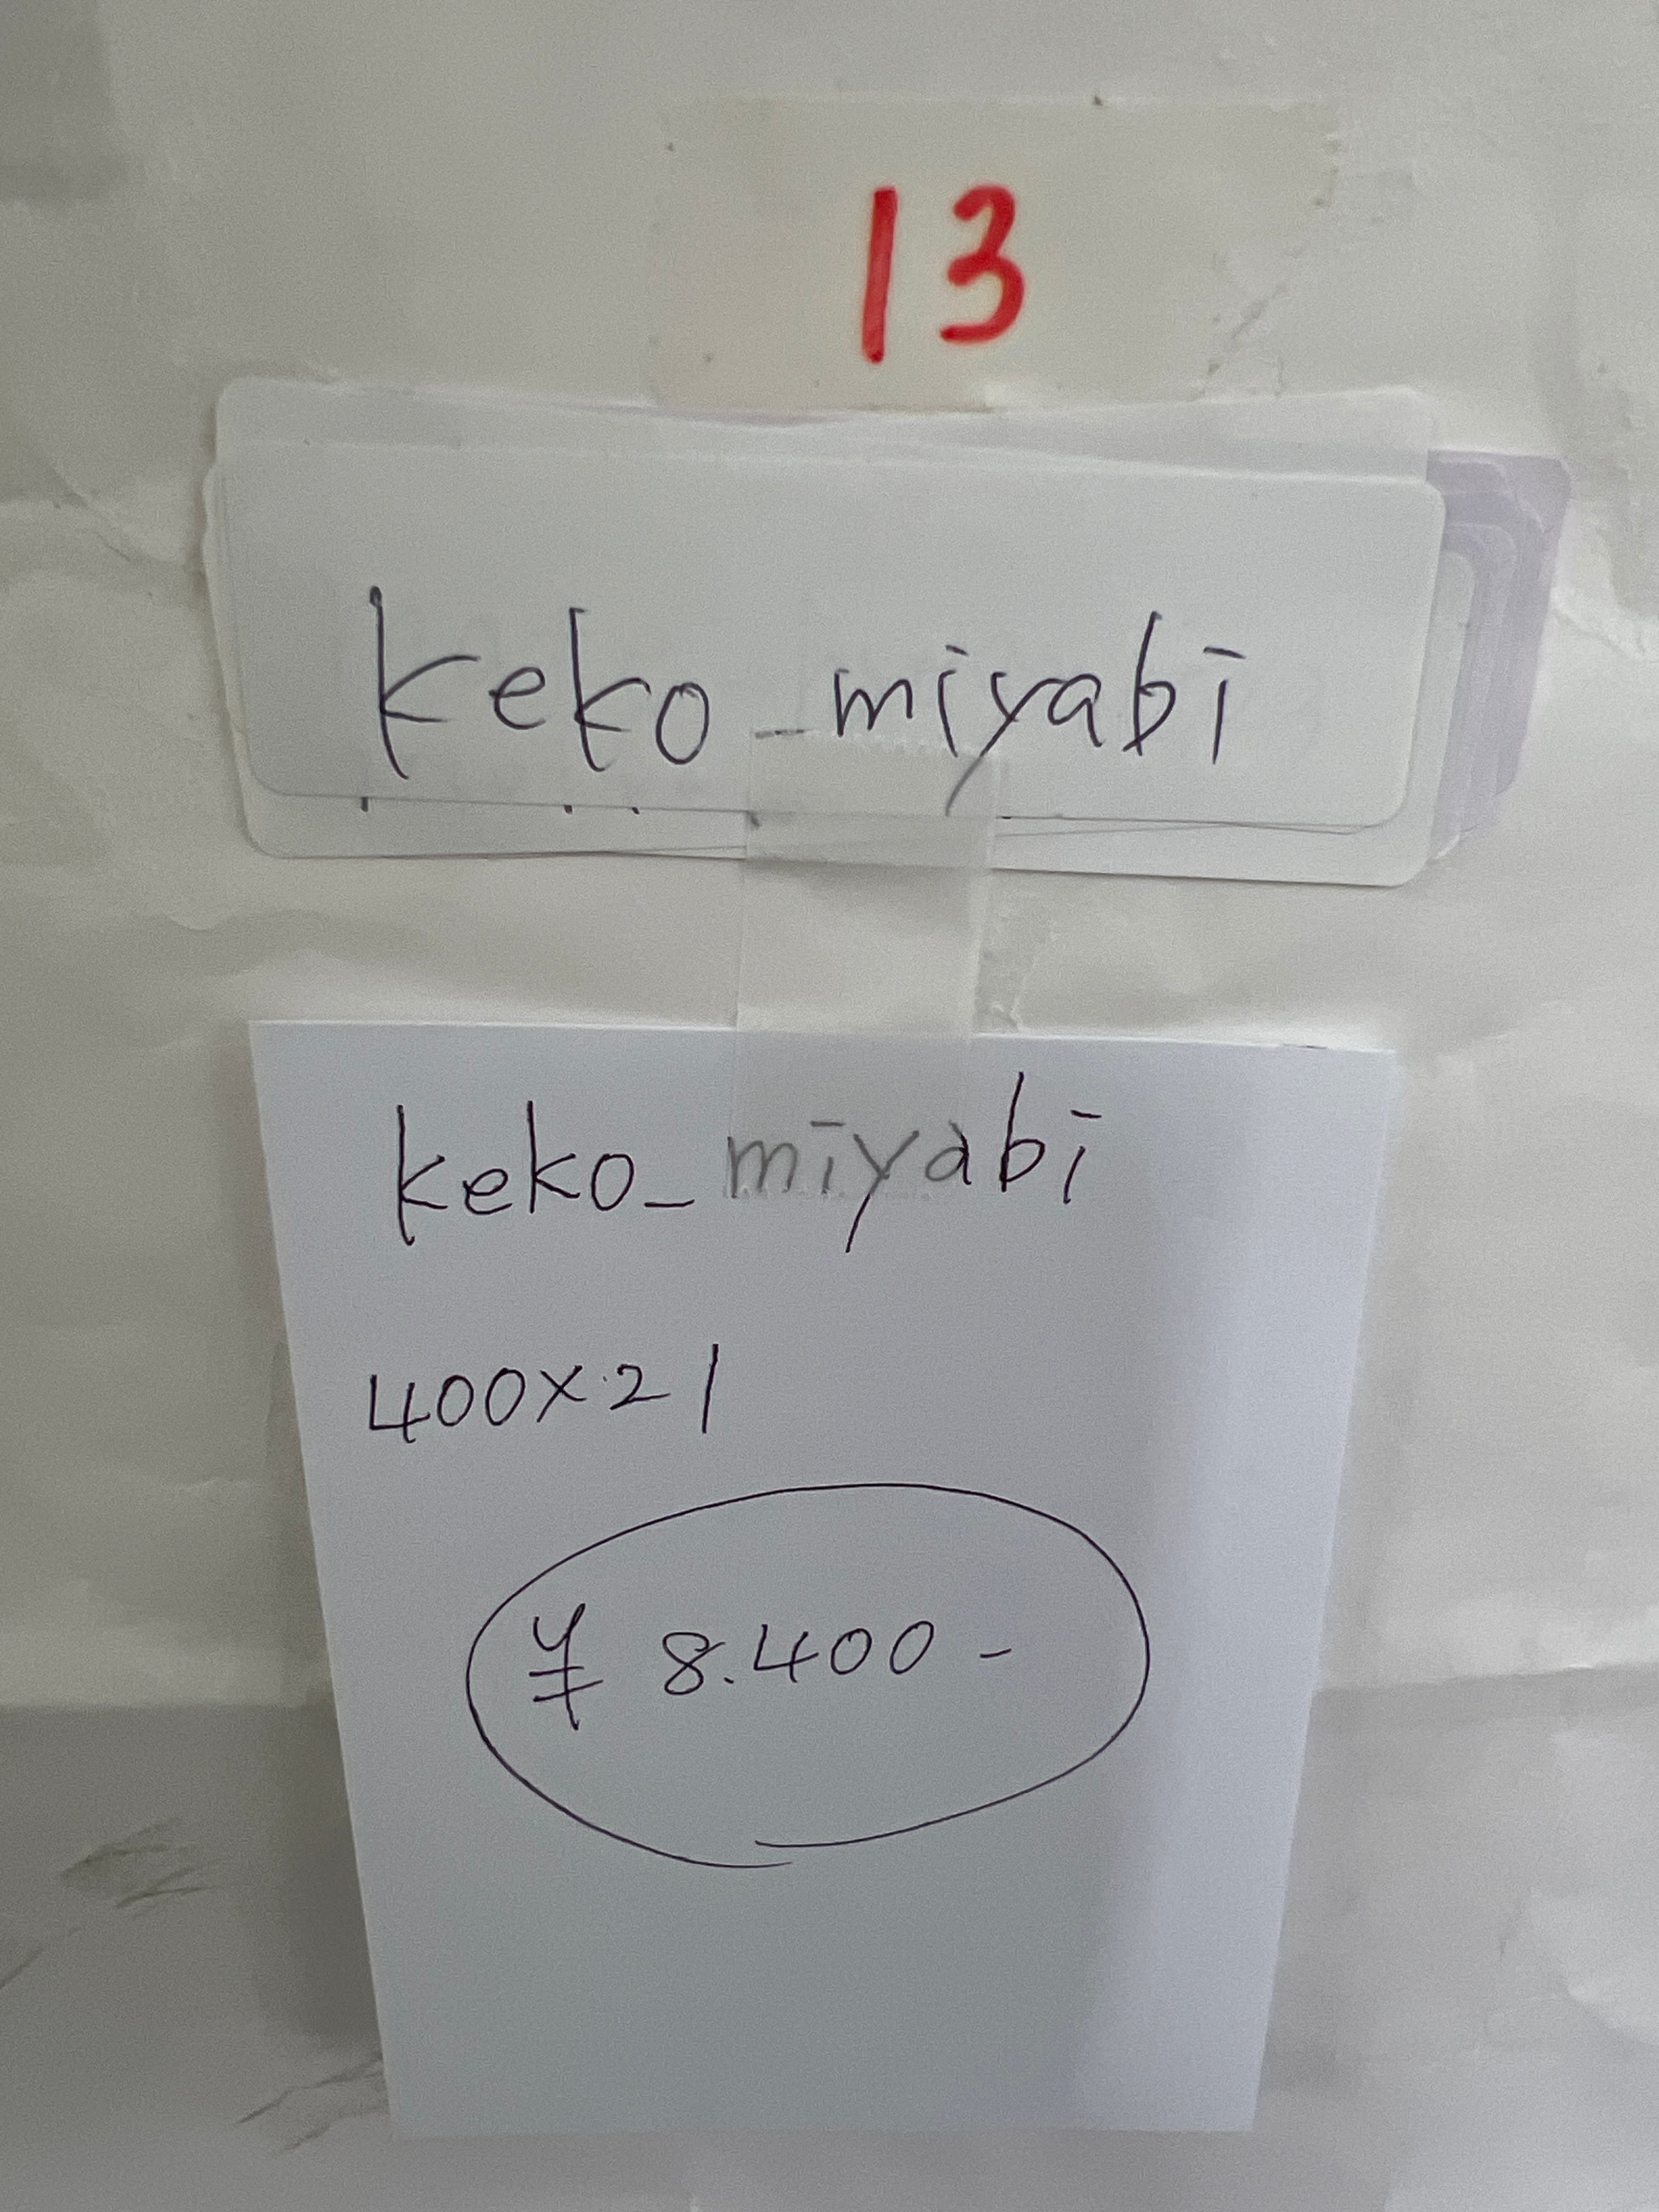 13
keko_miyabi
keko_miyabi
400×21
¥ 8.400-